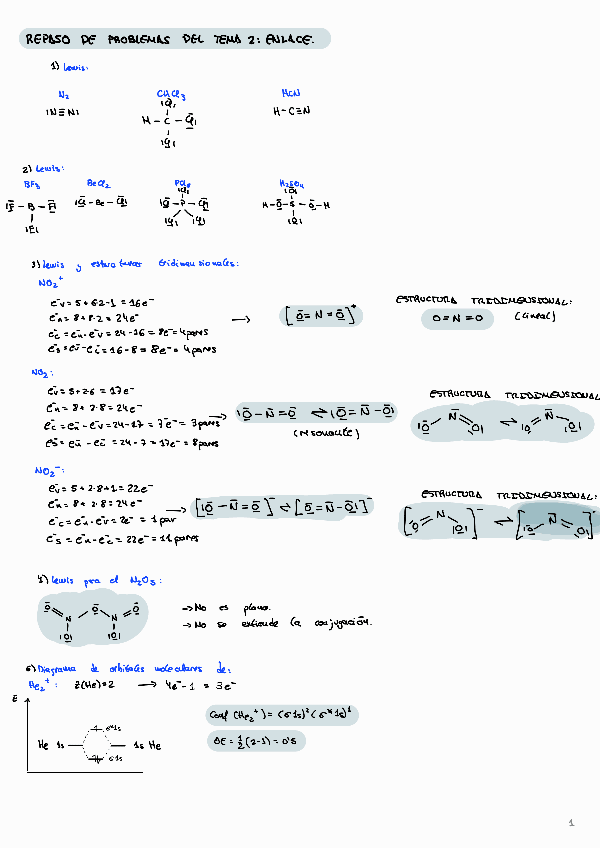 REPASO DE PROBLEMAS DEL TEMA 2: ENLACE.
1) Lewis:
N₂ CHCl₃ HCN
|N≡N|
H-C≡N
2) Lewis:
BF₃ BeCl₂ H₂SO₄
3) Lewis y estructuras tridimensionales:
NO₂⁺
e⁻v = 5 + 6·2 - 1 = 16e⁻
e⁻n = 8 + 8·2 = 24e⁻
e⁻c = e⁻n - e⁻v = 24 - 16 = 8e⁻ = 4 pares
e⁻s = e⁻v - e⁻c = 16 - 8 = 8e⁻ = 4 pares
→ [O̲̅=N=O̲̅]⁺
ESTRUCTURA TRIDIMENSIONAL:
O=N=O (Lineal)
NO₂:
e⁻v = 5 + 2·6 = 17e⁻
e⁻n = 8 + 2·8 = 24e⁻
e⁻c = e⁻n - e⁻v = 24 - 17 = 7e⁻ = 3 pares
= 24 - 7 = 17e⁻ = 8 pares
(resonante)
ESTRUCTURA TRIDIMENSIONAL
NO₂⁻:
e⁻v = 5 + 2·8 + 1 = 22e⁻
e⁻n = 8 + 2·8 = 24e⁻
e⁻c = e⁻n - e⁻v = 2e⁻ = 1 par
e⁻s = e⁻n - e⁻c = 22e⁻ = 11 pares
ESTRUCTURA TRIDIMENSIONAL:
Lewis pra el N₂O₅:
→ No es plana.
→ No se extiende la conjugación.
Diagrama de orbitales moleculares de:
He₂⁺: Z(He)=2 → 4e⁻ - 1 = 3e⁻
E
He 1s σ*1s 1s He
σ1s
Conf (He₂⁺) = (σ1s)² (σ*1s)¹
OE = ½ (2-1) = 0'5
1